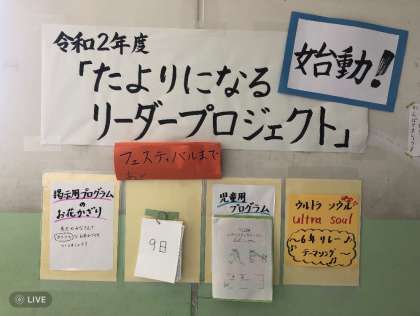 令和2年度
始動!
「たよりになる
リーダープロジェクト」
フェスティバルまで
あと
9日
掲示用プログラム
の
お花かざり
児童用
プログラム
ウルトラ ソウル
ultra soul
〜6年リレー♪
テーマソング〜
LIVE